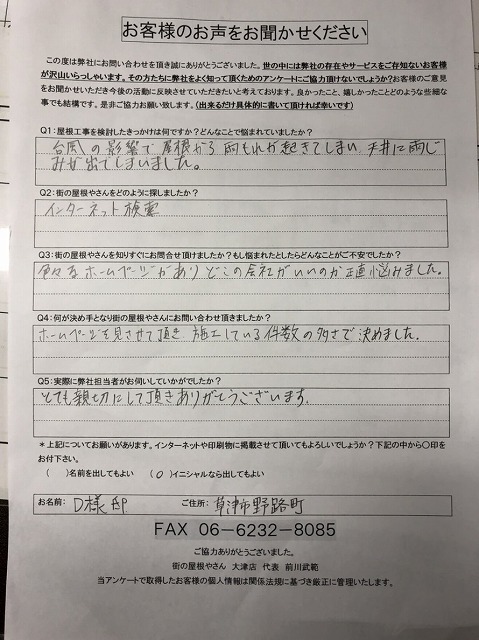 お客様のお声をお聞かせください
この度は弊社にお問い合わせを頂き誠にありがとうございました。世の中には弊社の存在やサービスをご存知ないお客様
が沢山いらっしゃいます。その方たちに弊社をよく知って頂くためのアンケートにご協力頂けないでしょうか？お客様のご意見
をお聞かせいただき今後の活動に反映させていただきたいと考えております。良かったこと、嬉しかったことどのような些細な
事でも結構です。是非ご協力お願い致します。（出来るだけ具体的に書いて頂ければ幸いです）
Q1：屋根工事を検討したきっかけは何ですか？どんなことで悩まれていましたか？
台風の影響で屋根から雨もれが起きてしまい天井に雨じ
みが出てしまいました。
Q2：街の屋根やさんをどのように探しましたか？
インターネット検索
Q3：街の屋根やさんを知りすぐにお問合せ頂けましたか？もし悩まれたとしたらどんなことがご不安でしたか？
色々なホームページがありどこの会社がいいのか正直悩みました。
Q4：何が決め手となり街の屋根やさんにお問い合わせ頂きましたか？
ホームページを見させて頂き、施工している件数の多さで決めました。
Q5：実際に弊社担当者がお伺いしていかがでしたか？
とても親切にして頂きありがとうございます。
＊上記についてお願いがあります。インターネットや印刷物に掲載させて頂いてもよろしいでしょうか？下記の中から〇印を
お付下さい。
（　）名前を出してもよい　（○）イニシャルなら出してもよい
お名前： D様邸　ご住所： 草津市野路町
FAX 06－6232－8085
ご協力ありがとうございました。
街の屋根やさん　大津店　代表　前川武範
当アンケートで取得したお客様の個人情報は関係法規に基づき厳正に管理いたします。